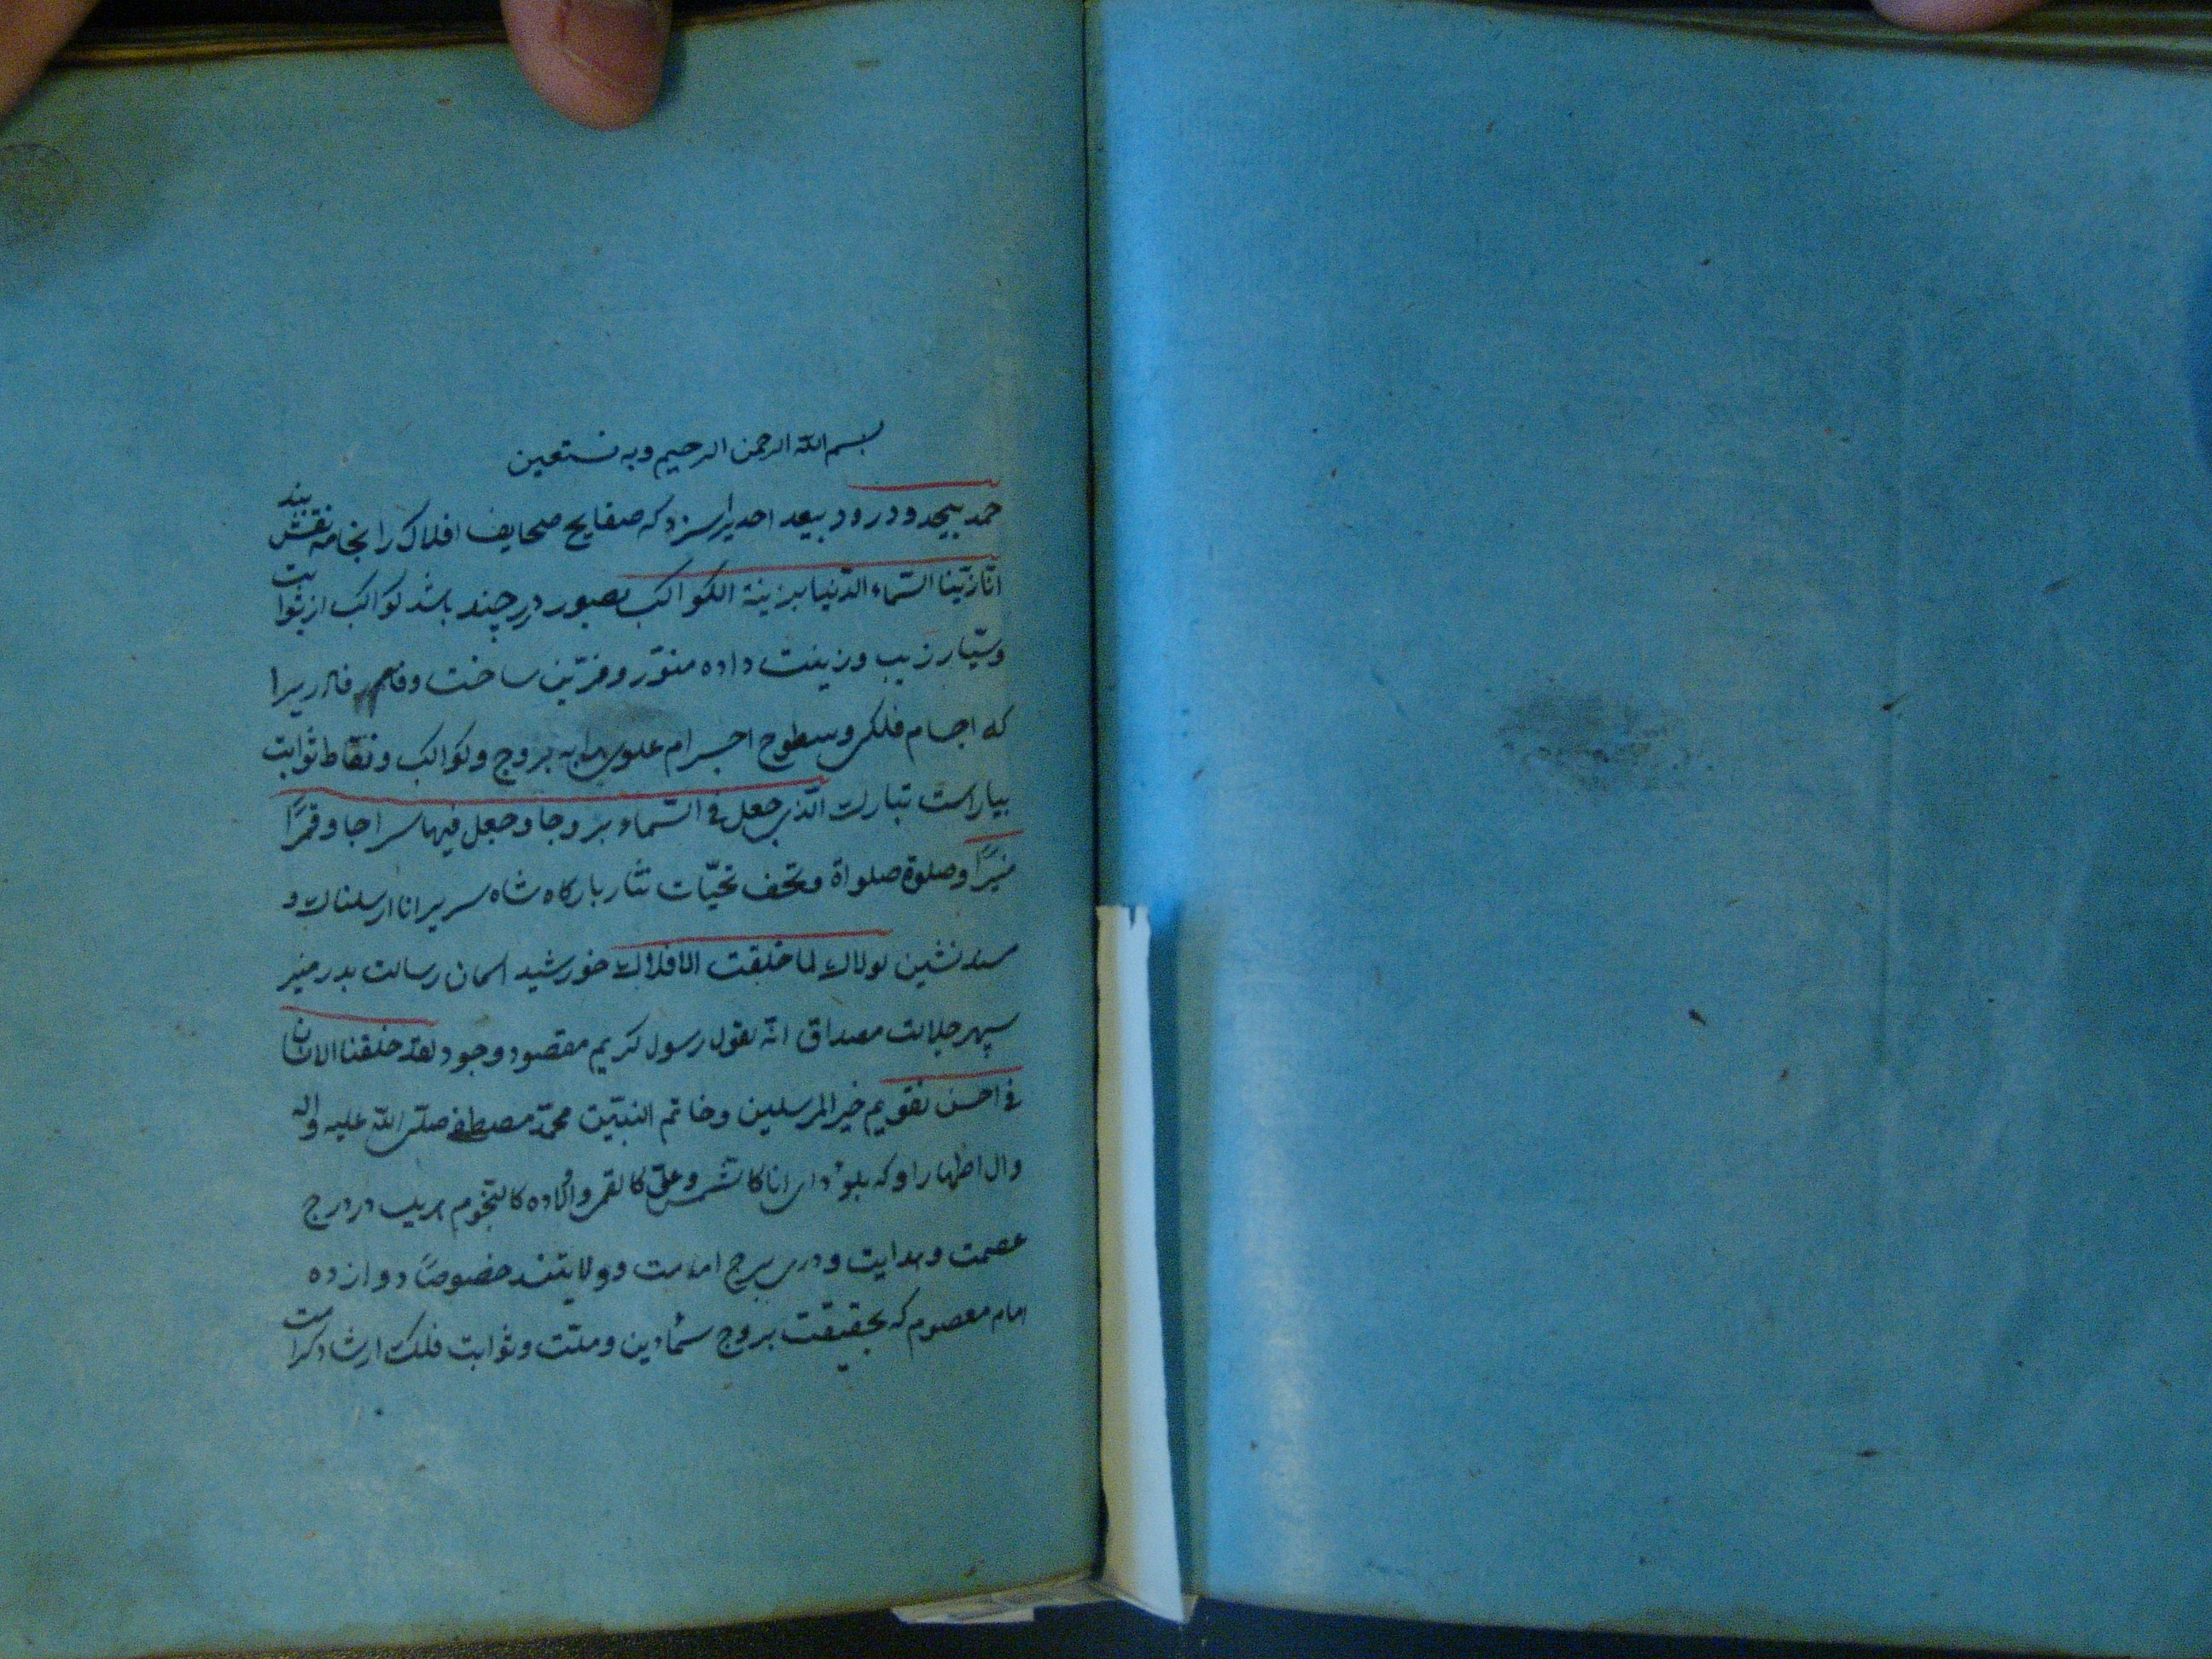 بسم الله الرحمن الرحیم وبه نستعین
حمد بیحد و درود بیعد احدیرا سزد که صفایح صحایف افلاک را بخامه نقش بند
انا زینا السماء الدنیا بزینة الکواکب بصور درر چند باشد کواکب از ثوابت
وسیار زیب و زینت داده منور و مزین ساخت و
که اجسام فلکی و سطوح اجرام علوی را به بروج و کواکب و نقاط ثوابت
بیاراست تبارک الذی جعل فی السماء بروجا وجعل فیها سراجا وقمرًا
منیرًا وصلوة صلواة وتحف تحیّات نثار بارکاه شاه سریر انا ارسلناک و
مسند نشین لولاک لما خلقت الافلاک خورشید اسمان رسالت بدر منیر
سپهر جلالت مصداق انّه لقول رسول کریم مقصود وجود لقد خلقنا الانسان
فی احسن تقویم خیر المرسلین وخاتم النبیّین محمّد مصطفی صلّی اللّه علیه واله
وال اطهار او که انا کالشمس وعلی کالقمر و اولاده کالنجوم هریک در درج
عصمت و هدایت و دری برج امامت و ولایتند خصوصًا دوازده
امام معصوم که بحقیقت بروج سماء دین و ملّت و ثوابت فلک ارشاد